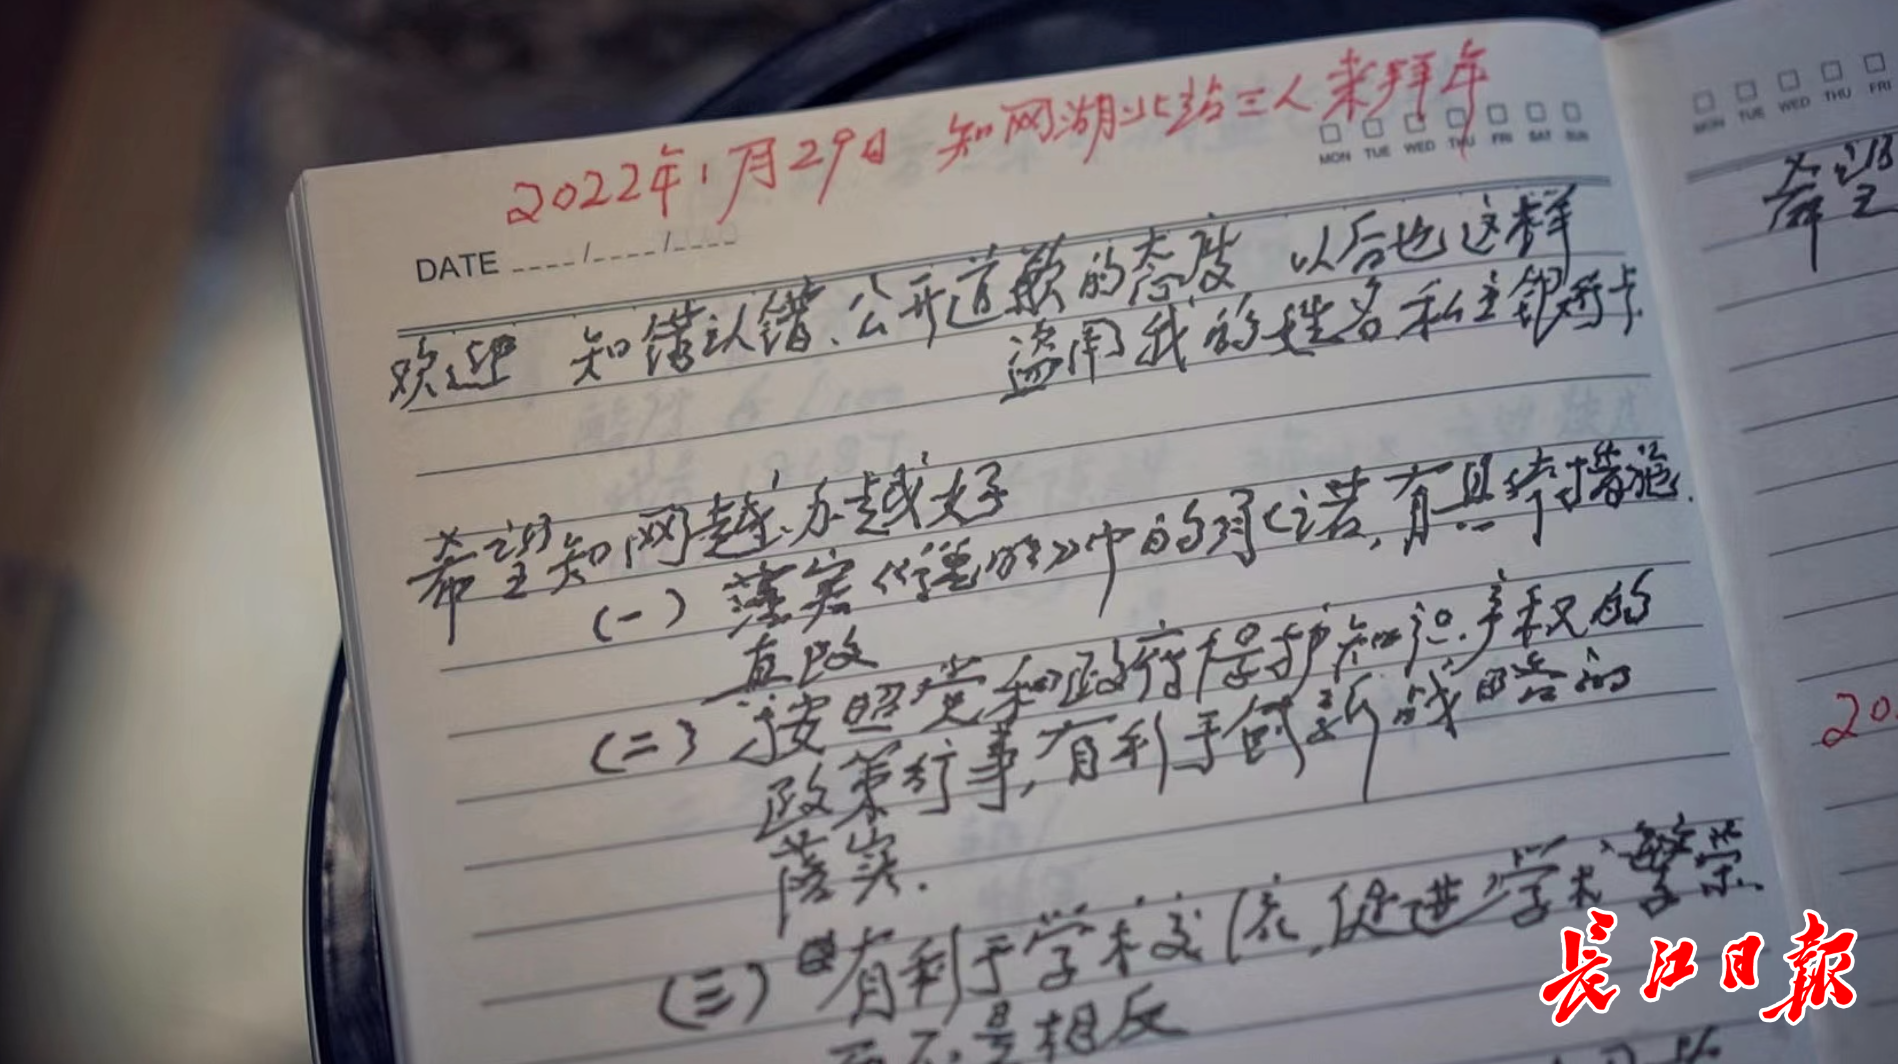 2022年1月29日 知网湖北站三人来拜年
MON TUE WED THU FRI SAT SUN
DATE ____/____/____
欢迎 知错认错、公开道歉的态度 以后也这样
盗用我的姓名、私立银行卡
希望知网越办越好
(一) 落实《说明》中的承诺，有具体措施.
真改
(二) 按照党和政府保护知识产权的
政策行事，有利于创新战略的
落实.
(三) 有利于学术交流，促进学术繁荣、
而不是相反
MON TUE WED THU FRI
希望
20
长江日报